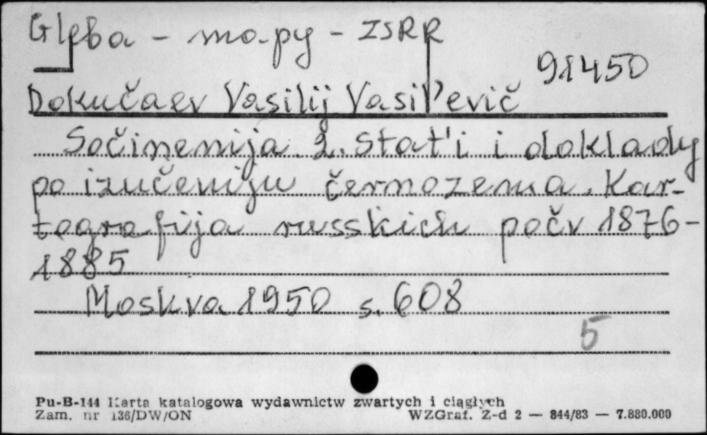 Gleba - mapy - ZSRR
91450
Dokučaev Vasilij Vasil'evič
Sočinenija 2. Stat'i i doklady
po izučeniju černozema. Kar-
tografija russkich počv 1876-
1885
Moskva 1950 s. 608
5
Pu-B-144 Karta katalogowa wydawnictw zwartych i ciągłych
Zam. nr 136/DW/ON WZGraf. Z-d 2 — 844/83 — 7.880.000